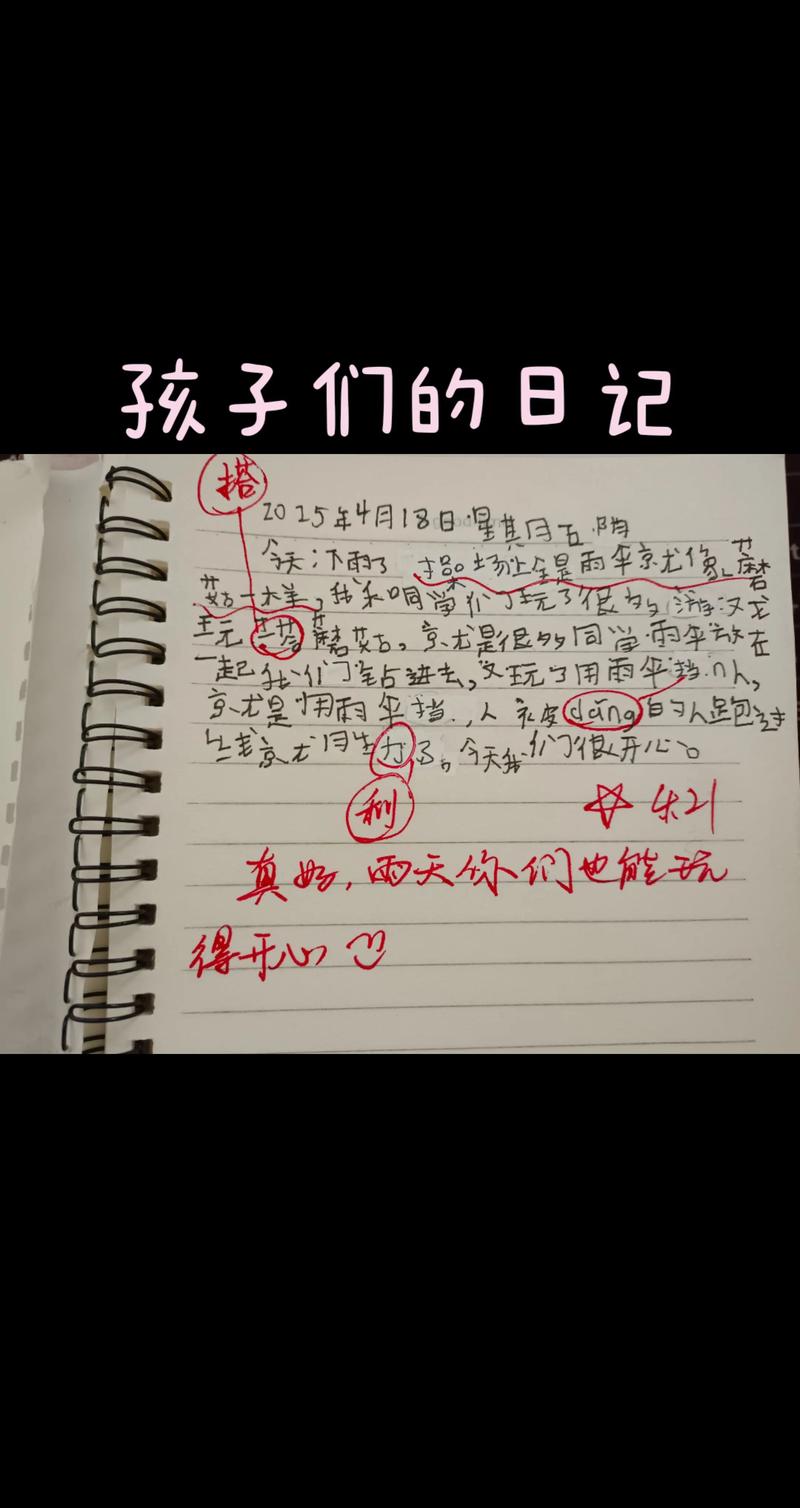 孩子们的日记
搭
2025年4月18日星其月五 阴
今天下雨了 操场上全是雨伞就像蘑
菇一样，我和同学们玩了很多游戏
玩 蘑菇，就是很多同学雨伞放在
一起我们钻进去，又玩了用雨伞挡人，
就是用雨伞挡，人 被dǎng的人跑过
线就月生力了。今天我们很开心。
利
☆ 4.21
真好，雨天你们也能玩
得开心